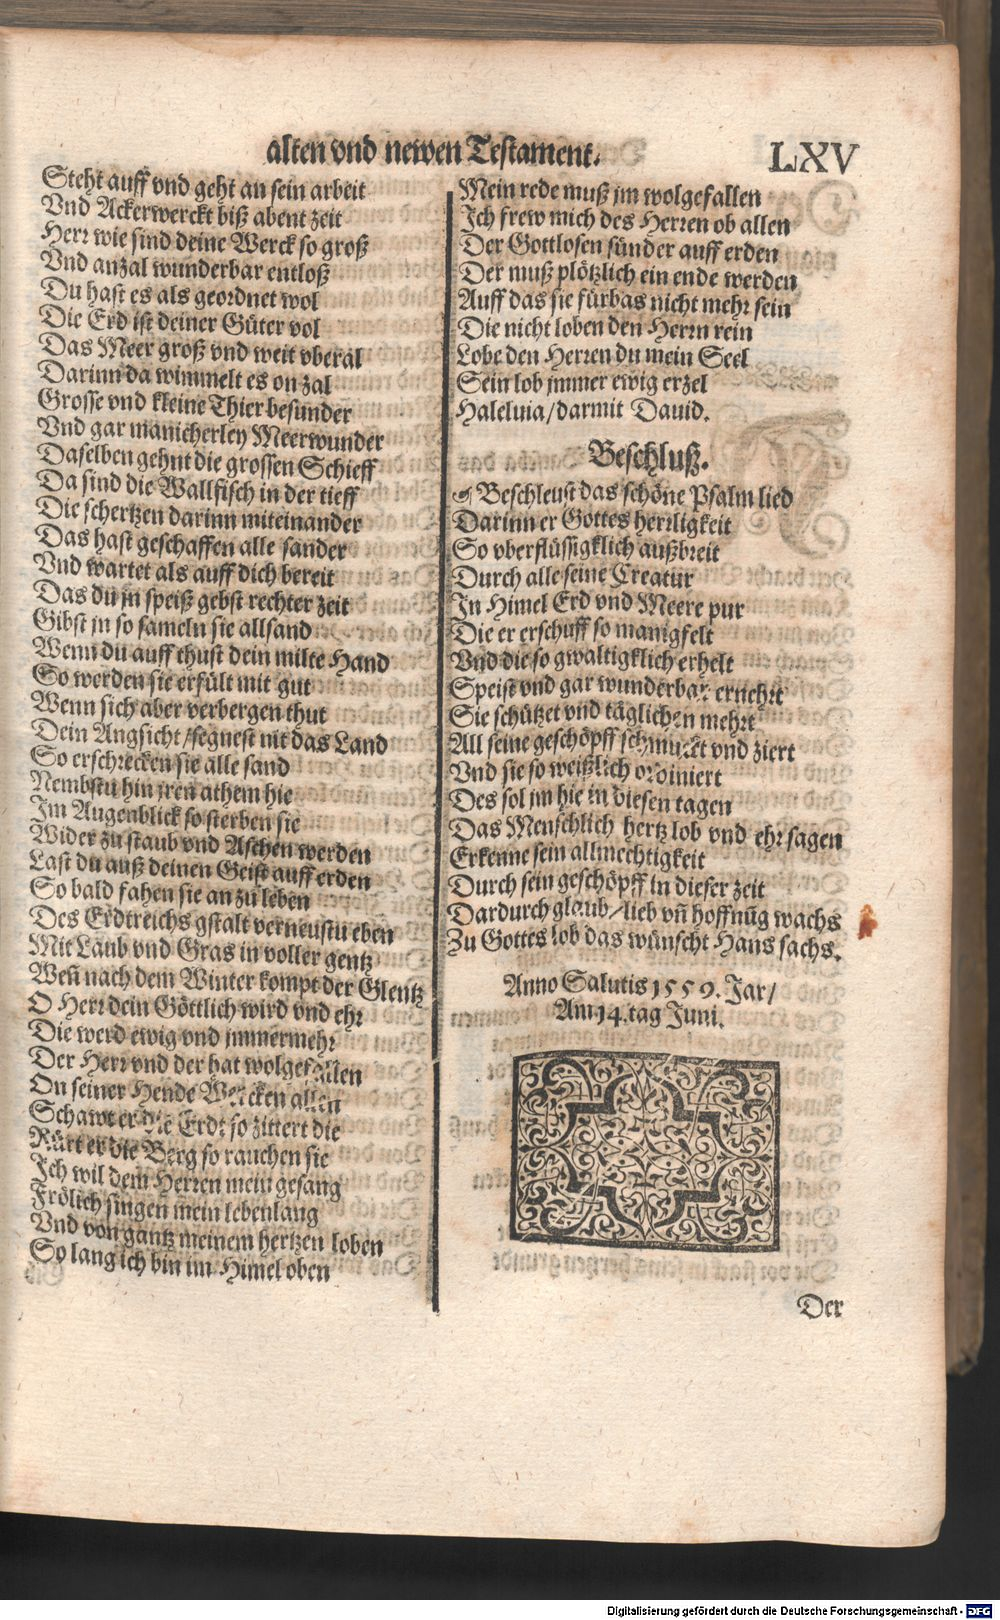 alten vnd newen Testament.
LXV
Steht auff vnd geht an sein arbeit
Vnd Ackerwerckt biß abent zeit
Herr wie sind deine Werck so groß
Vnd anzal wunderbar entloß
Du hast es als geordnet wol
Die Erd ist deiner Güter vol
Das Meer groß vnd weit vberal
Darinn da wimmelt es on zal
Grosse vnd kleine Thier besunder
Vnd gar manicherley Meerwunder
Daselben gehnt die grossen Schieff
Da sind die Wallfisch in der tieff
Die schertzen darinn miteinander
Das hast geschaffen alle sander
Vnd wartet als auff dich bereit
Das du jn speiß gebst rechter zeit
Gibst jn so sameln sie allsand
Wenn du auff thust dein milte Hand
So werden sie erfült mit gut
Wenn sich aber verbergen thut
Dein Angsicht / segnest nit das Land
So erschrecken sie alle sand
Nembstu hin jren athem hie
Im Augenblick so sterben sie
Wider zu staub vnd Aschen werden
Last du auß deinen Geist auff erden
So bald fahen sie an zu leben
Des Erdtreichs gstalt verneustu eben
Mit Laub vnd Gras in voller gentz
Weñ nach dem Winter kompt der Glentz
O Herr dein Göttlich wird vnd ehr
Die werd ewig vnd jmmermehr
Der Herr vnd der hat wolgefallen
On seiner Hende Wercken allen
Schawt er die Erdt so zittert die
Rürt er die Berg so rauchen sie
Ich wil dem Herren mein gesang
Frölich singen mein lebenlang
Vnd von gantz meinem hertzen loben
So lang ich bin im Himel oben
Mein rede muß jm wolgefallen
Ich frew mich des Herren ob allen
Der Gottlosen sünder auff erden
Der muß plötzlich ein ende werden
Auff das sie fürbas nicht mehr sein
Die nicht loben den Herrn rein
Lobe den Herren du mein Seel
Sein lob jmmer ewig erzel
Haleluia / darmit Dauid.
Beschluß.
Beschleust das schöne Psalm lied
Darinn er Gottes herrligkeit
So vberflüssigklich außbreit
Durch alle seine Creatur
In Himel Erd vnd Meere pur
Die er erschuff so manigfelt
Vnd die so gwaltigklich erhelt
Speist vnd gar wunderbar ernehrt
Sie schützet vnd täglichen mehrt
All seine geschöpff schmuckt vnd ziert
Vnd sie so weißlich ordiniert
Des sol jm hie in diesen tagen
Das Menschlich hertz lob vnd ehr sagen
Erkenne sein allmechtigkeit
Durch sein geschöpff in dieser zeit
Dardurch glaub / lieb vñ hoffnūg wachs
Zu Gottes lob das wünscht Hans sachs.
Anno Salutis 1559. Jar /
Am 14. tag Juni.
Der
Digitalisierung gefördert durch die Deutsche Forschungsgemeinschaft - DFG